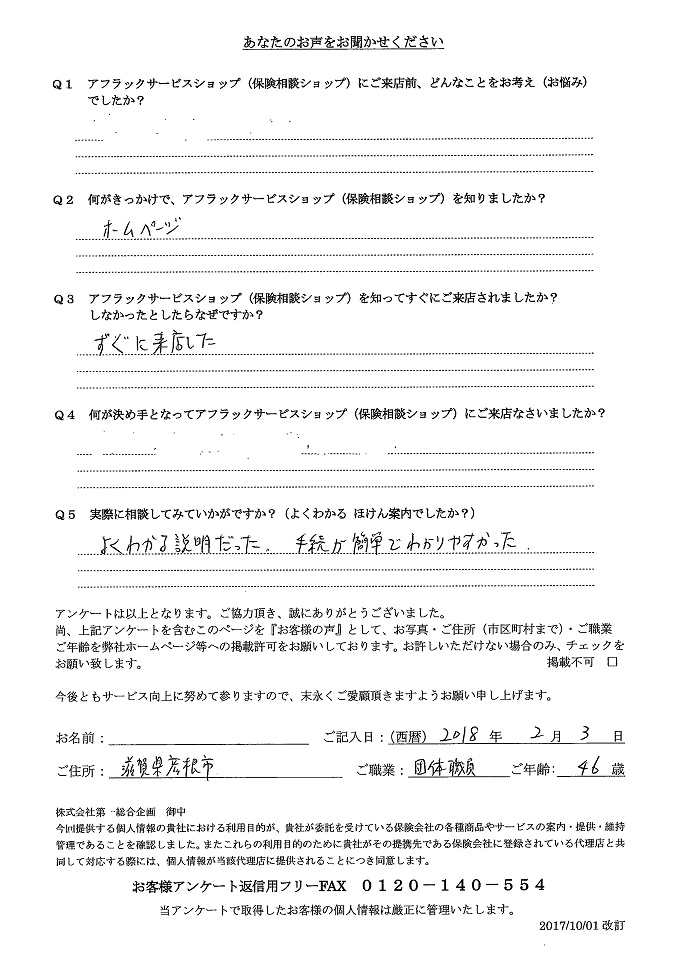 あなたのお声をお聞かせください
Q1 アフラックサービスショップ（保険相談ショップ）にご来店前、どんなことをお考え（お悩み）
でしたか？
Q2 何がきっかけで、アフラックサービスショップ（保険相談ショップ）を知りましたか？
ホームページ
Q3 アフラックサービスショップ（保険相談ショップ）を知ってすぐにご来店されましたか？
しなかったとしたらなぜですか？
すぐに来店した
Q4 何が決め手となってアフラックサービスショップ（保険相談ショップ）にご来店なさいましたか？
Q5 実際に相談してみていかがですか？（よくわかる ほけん案内でしたか？）
よくわかる説明だった。 手続が簡単でわかりやすかった。
アンケートは以上となります。ご協力頂き、誠にありがとうございました。
尚、上記アンケートを含むこのページを『お客様の声』として、お写真・ご住所（市区町村まで）・ご職業
ご年齢を弊社ホームページ等への掲載許可をお願いしております。お許しいただけない場合のみ、チェックを
お願い致します。 掲載不可 □
今後ともサービス向上に努めて参りますので、末永くご愛顧頂きますようお願い申し上げます。
お名前： ご記入日：（西暦） 2018 年 2 月 3 日
ご住所： 滋賀県彦根市 ご職業： 団体職員 ご年齢： 46 歳
株式会社第一総合企画 御中
今回提供する個人情報の貴社における利用目的が、貴社が委託を受けている保険会社の各種商品やサービスの案内・提供・維持
管理であることを確認しました。またこれらの利用目的のために貴社がその提携先である保険会社に登録されている代理店と共
同して対応する際には、個人情報が当該代理店に提供されることにつき同意します。
お客様アンケート返信用フリーFAX 0120－140－554
当アンケートで取得したお客様の個人情報は厳正に管理いたします。
2017/10/01 改訂